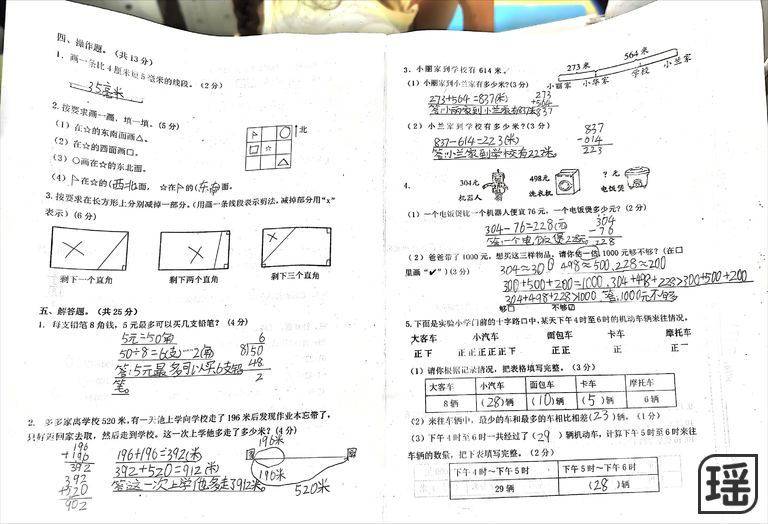 四、操作题。（共13分）
1. 画一条比4厘米短5毫米的线段。（2分）
35毫米
2. 按要求画一画、填一填。（5分）
（1）在☆的东南面画△。
（2）在☆的西面画口。
（3）○画在☆的东北面。
（4）在☆的(西北)面，☆在的(东南)面。
北
3. 按要求在长方形上分别减掉一部分。（用画一条线段表示剪法，减掉部分用“x”
表示）（6分）
剩下一个直角 剩下两个直角 剩下三个直角
五、解答题。（共25分）
1. 每支铅笔8角钱，5元最多可以买几支铅笔？（4分）
5元=50角
50÷8=6支……2角
答:5元最多可以买6支铅
笔。
6
8)50
48
2
2. 多多家离学校520米，有一天他上学向学校走了196米后发现作业本忘带了，
只好返回家去取，然后走到学校。这一次上学他多走了多少米？（4分）
196
+196
392
392
+520
902
196+196=392(米)
392+520=912(米)
答:这一次上学他多走了912米。
196米
196米
520米
3. 小丽家到学校有614米。
273米 564米
小丽家 小华家 学校 小兰家
（1）小丽家到小兰家有多少米?(3分)
273+564=837(米)
273
+564
837
（2）小兰家到学校有多少米?(3分)
837-614=223(米)
答:小兰家到学校有223米。
837
-614
223
4.
304元 498元 ？元
机器人 洗衣机 电饭煲
（1）一个电饭煲比一个机器人便宜76元，一个电饭煲多少元？（2分）
304-76=228(元)
304
-76
228
（2）爸爸带了1000元，想买这三样物品，请你估一估1000元够不够？（在口
里画“✔”）(3分)
304≈300 498≈500 228≈200
300+500+200=1000 304+498+228>300+500+200
304+498+228>1000 答:1000元不够
够口 不够
5. 下面是实验小学门前的十字路口中，某天下午4时至6时的机动车辆来往情况。
大客车 小汽车 面包车 卡车 摩托车
正下 正正正正正下 正正 正 正一
（1）请你根据记录情况，把表格填写完整。（3分）
大客车 小汽车 面包车 卡车 摩托车
8辆 (28)辆 (10)辆 (5)辆 6辆
（2）来往车辆中，最少的车和最多的车相比相差(23)辆。（1分）
（3）下午4时至6时一共经过了(29)辆机动车，计算下午5时至6时来往
车辆的数量，把下表填写完整。（2分）
下午4时～下午5时 下午5时～下午6时
29辆 (28)辆
瑶